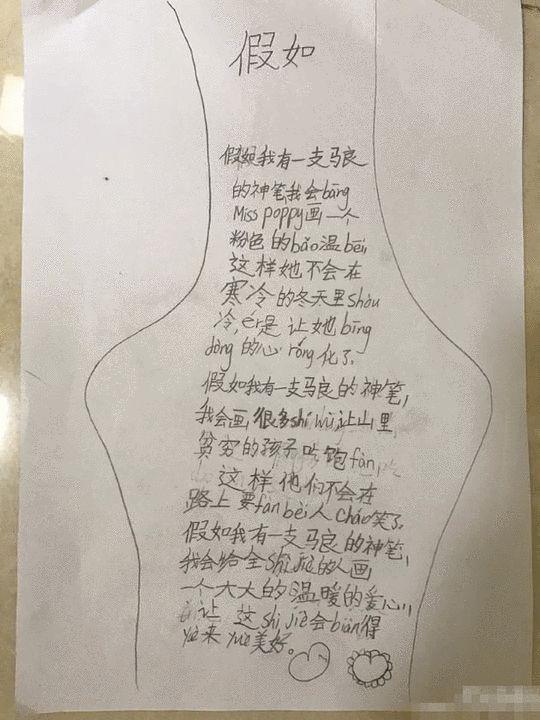 假如
假如我有一支马良
的神笔我会bāng
Miss poppy画一个
粉色的bǎo温bēi
这样她不会在
寒冷的冬天里shòu
冷,ér是让她bīng
dòng的心rǒng化了。
假如我有一支马良的神笔,
我会画很多shí wù让山里
贫穷的孩子吃饱fàn,
这样他们不会在
路上要fàn bèi人cháo笑了。
假如我有一支马良的神笔,
我会给全shì jiè的人画
一个大大的温暖的爱心,
让这shì jiè会biàn得
yuè来yuè美好。